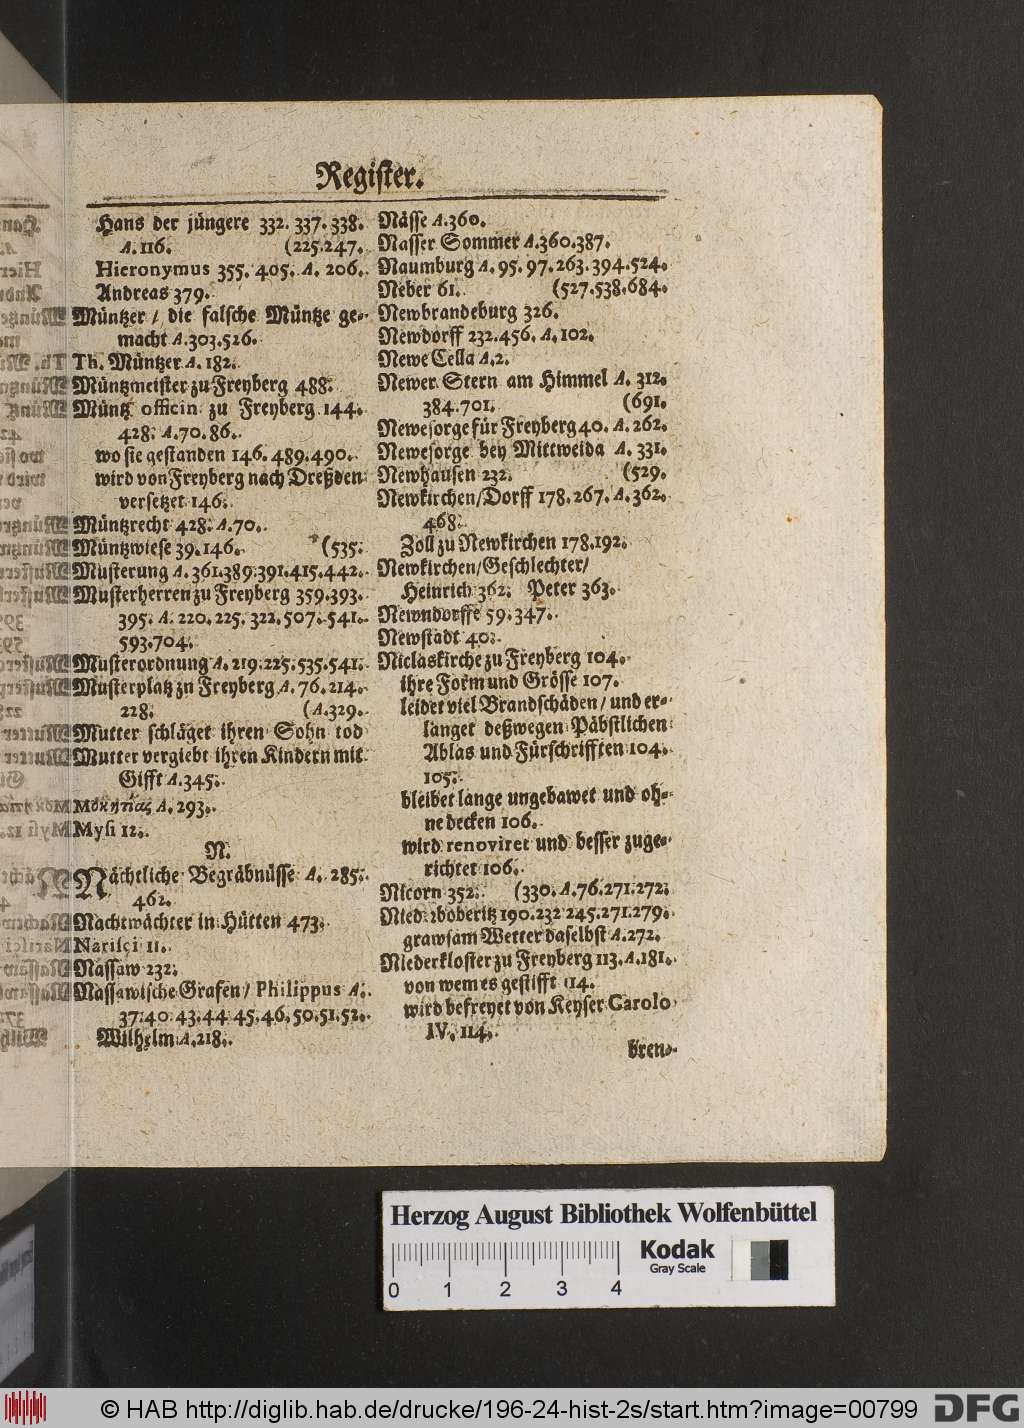 Register.
Hans der jüngere 332. 337. 338.
A. 116. (225. 247.
Hieronymus 355. 405. A. 206.
Andreas 379.
Müntzer / die falsche Müntze ge-
macht A. 303. 526.
Th. Müntzer A. 182.
Müntzmeister zu Freyberg 488.
Müntz officin zu Freyberg 144.
428. A. 70. 86.
wo sie gestanden 146. 489. 490.
wird von Freyberg nach Dreßden
versetzet 146.
Müntzrecht 428. A. 70.
Müntzwiese 39. 146. (535.
Musterung A. 361. 389. 391. 415. 442.
Musterherren zu Freyberg 359. 393.
395. A. 220. 225. 322. 507. 541.
593. 704.
Musterordnung A. 219. 225. 535. 541.
Musterplatz zu Freyberg A. 76. 214.
228. (A. 329.
Mutter schläget ihren Sohn tod
Mutter vergiebt ihren Kindern mit
Gifft A. 345.
A. 293.
Mysi 12.
N.
Nächtliche Begräbnüsse A. 285.
462.
Nachtwächter in Hütten 473.
Narisci 11.
Nassaw 232.
Nassawische Grafen / Philippus A.
37. 40. 43. 44 45. 46. 50. 51. 52.
Wilhelm A. 218.
Nässe A. 360.
Nasser Sommer A. 360. 387.
Naumburg A. 95. 97. 263. 394. 524.
Neber 61. (527. 538. 684.
Newbrandeburg 326.
Newdorff 232. 456. A. 102.
Newe Cella A. 2.
Newer Stern am Himmel A. 312.
384. 701. (691.
Newesorge für Freyberg 40. A. 262.
Newesorge bey Mittweida A. 331.
Newhausen 232. (529.
Newkirchen / Dorff 178. 267. A. 362.
468.
Zoll zu Newkirchen 178. 192.
Newkirchen / Geschlechter /
Heinrich 362. Peter 363.
Newndorffe 59. 347.
Newstadt 40.
Niclaskirche zu Freyberg 104.
ihre Form und Grösse 107.
leidet viel Brandschäden / und er-
langet deßwegen Päbstlichen
Ablas und Fürschrifften 104.
105.
bleibet lange ungebawet und oh-
ne decken 106.
wird renoviret und besser zuge-
richtet 106.
Nicorn 352. (330. A. 76. 271. 272.
190. 232 245. 271. 279.
grawsam Wetter daselbst A. 272.
Niederkloster zu Freyberg 113. A. 181.
von wem es gestifft 114.
wird befreyet von Keyser Carolo
IV. 114.
bren-
Herzog August Bibliothek Wolfenbüttel
0 1 2 3 4
Kodak
Gray Scale
© HAB http://diglib.hab.de/drucke/196-24-hist-2s/start.htm?image=00799
DFG